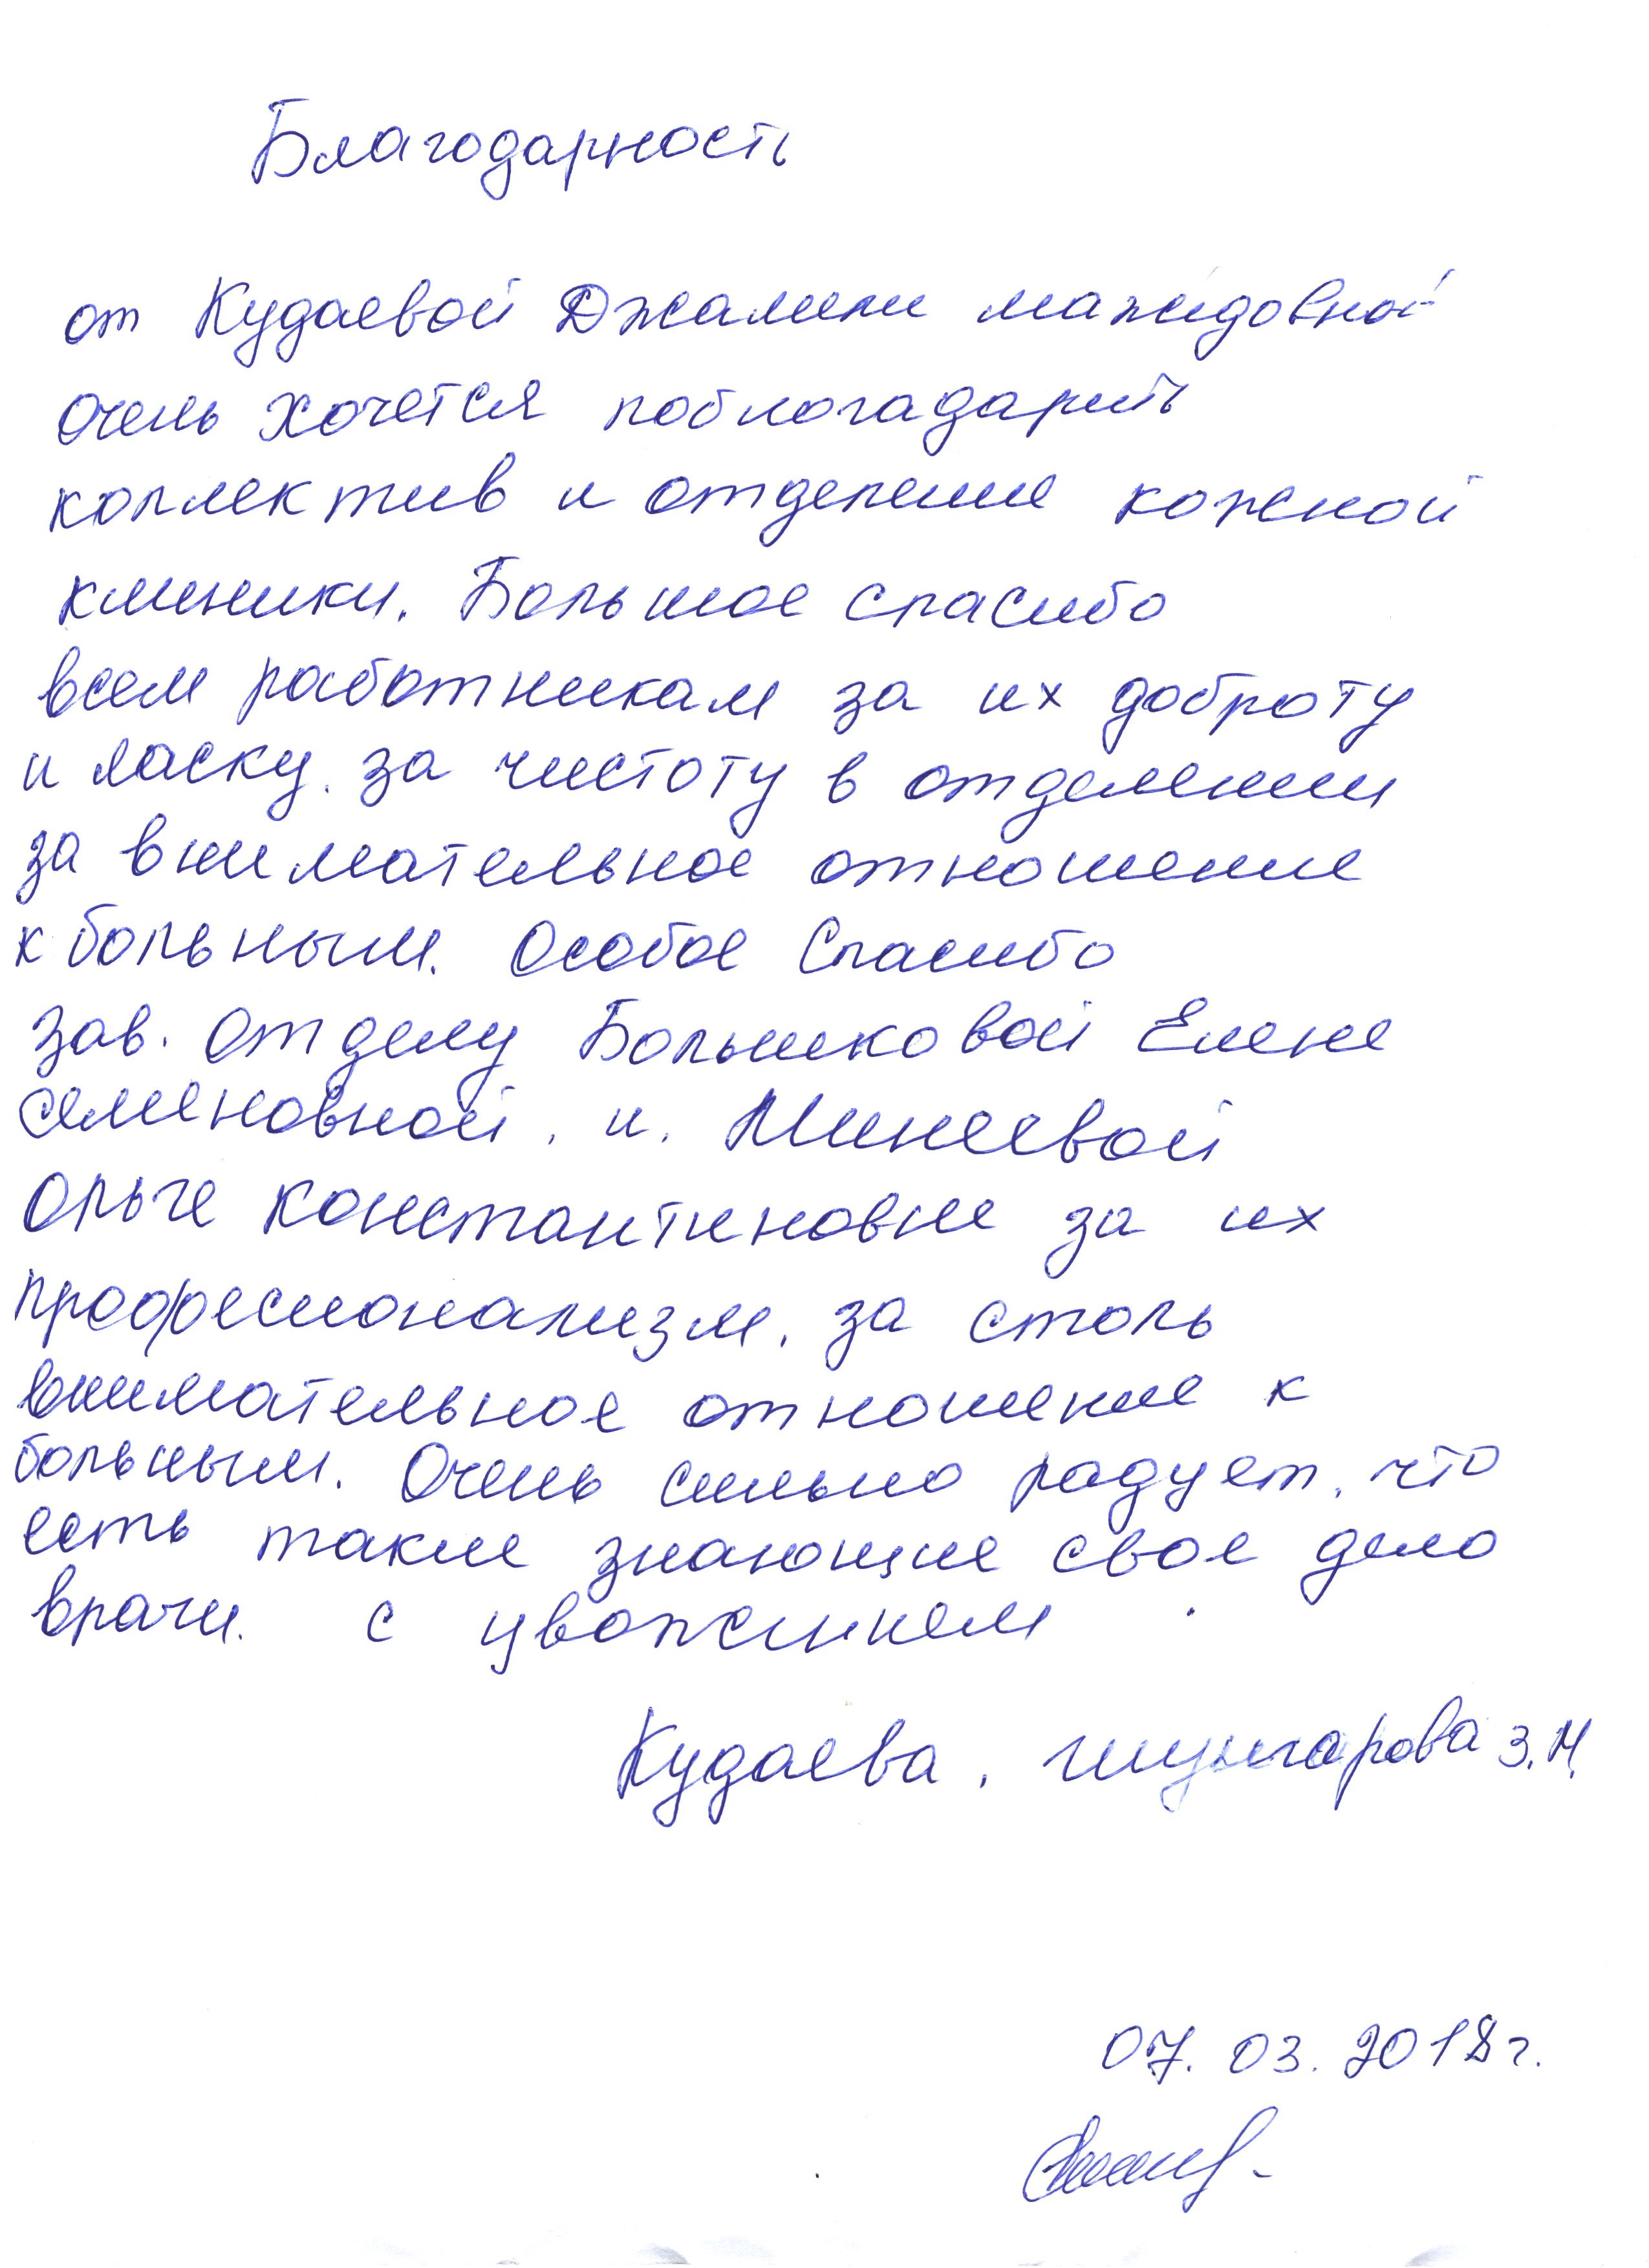 Благодарность
от Кудаевой Джамили мажидовной
очень хочется поблогадарить
коллектив и отделение кожной
клиники. Большое спасибо
всем работникам за их доброту
и ласку. за чистоту в отделении
за внимательное отношение
к больным. Особое Спасибо
зав. отделу Большковой Елене
семеновной, и. Минеевой
Ольге Константиновне за их
професионализм, за столь
внимательное отношение к
больным. Очень сильно радует, что
есть такие знающие свое дело
врачи. с уважением
Кудаева, З.М.
07.03.2018г.